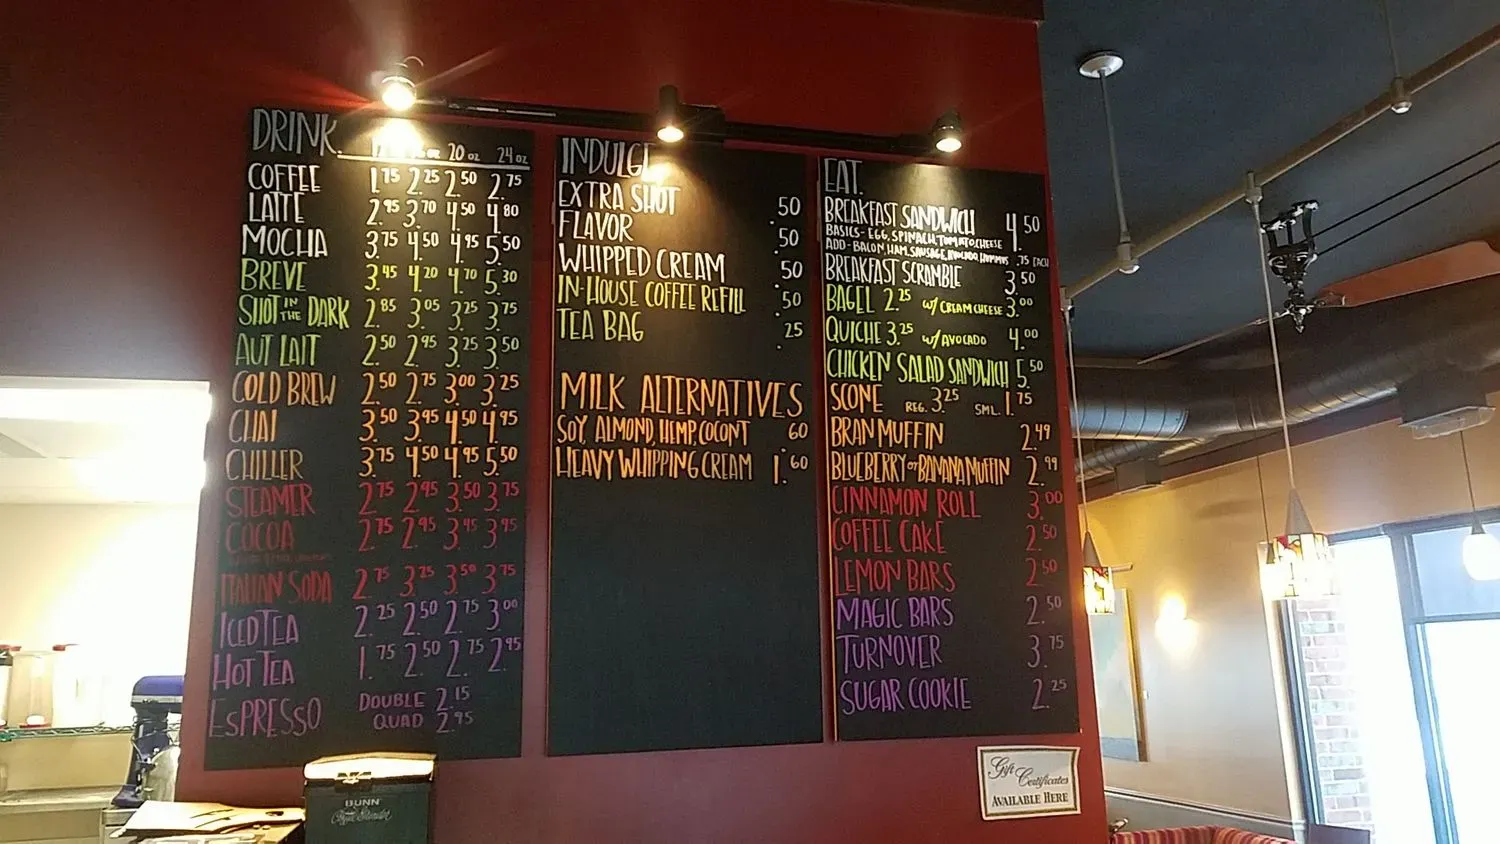 DRINK.
20 OZ 24 OZ
COFFEE 1.75 2.25 2.50 2.75
LATTE 2.95 3.70 4.50 4.80
MOCHA 3.75 4.50 4.95 5.50
BREVE 3.45 4.20 4.70 5.30
SHOT IN THE DARK 2.85 3.05 3.25 3.75
AUT LAIT 2.50 2.95 3.25 3.50
COLD BREW 2.50 2.75 3.00 3.25
CHAI 3.50 3.95 4.50 4.95
CHILLER 3.75 4.50 4.95 5.50
STEAMER 2.75 2.95 3.50 3.75
COCOA 2.75 2.95 3.45 3.95
ITALIAN SODA 2.75 3.25 3.50 3.75
ICED TEA 2.25 2.50 2.75 3.00
HOT TEA 1.75 2.50 2.75 2.95
ESPRESSO DOUBLE 2.15
QUAD 2.95
INDULGE
EXTRA SHOT .50
FLAVOR .50
WHIPPED CREAM .50
IN-HOUSE COFFEE REFILL .50
TEA BAG .25
MILK ALTERNATIVES
SOY, ALMOND, HEMP, COCONT .60
HEAVY WHIPPING CREAM 1.60
EAT.
BREAKFAST SANDWICH 4.50
BASICS - EGG, SPINACH, TOMATO, CHEESE
ADD - BACON, HAM, SAUSAGE, AVOCADO, HUMMUS .75 EACH
BREAKFAST SCRAMBLE 3.50
BAGEL 2.25 w/ CREAM CHEESE 3.00
QUICHE 3.25 w/ AVOCADO 4.00
CHICKEN SALAD SANDWICH 5.50
SCONE REG. 3.25 SML. 1.75
BRAN MUFFIN 2.49
BLUEBERRY or BANANA MUFFIN 2.99
CINNAMON ROLL 3.00
COFFEE CAKE 2.50
LEMON BARS 2.50
MAGIC BARS 2.50
TURNOVER 3.75
SUGAR COOKIE 2.25
Gift Certificates
AVAILABLE HERE
BUNN